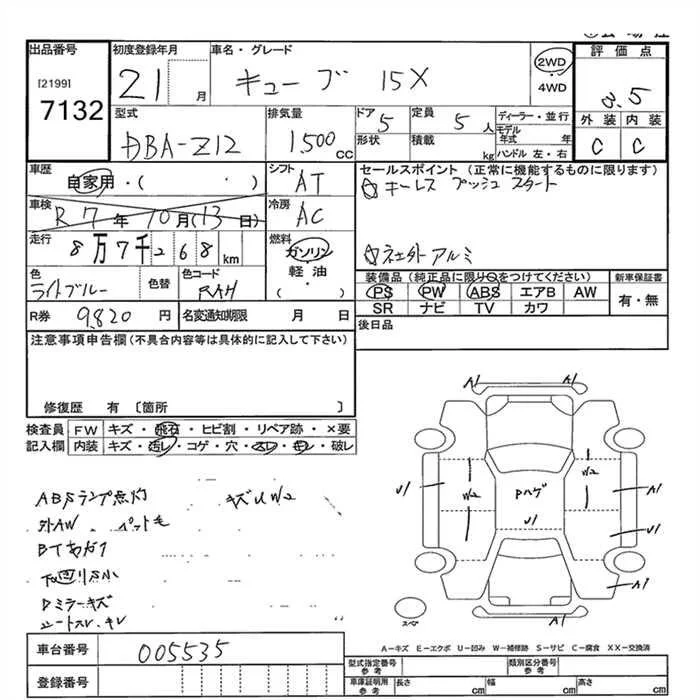 出品番号
[2199]
7132
初度登録年月
21 月
車名・グレード
キューブ 15X
2WD
4WD
評価点
3.5
外装 内装
C C
型式
DBA-Z12
排気量
1500 cc
ドア
5
形状
定員
5 人
積載
kg
ディーラー・並行
モデル年式 年
ハンドル 左・右
車歴
自家用・( ・ )
シフト
AT
車検
R7年10月(13日)
冷房
AC
走行
8万7千268 km
燃料
ガソリン
軽・油
( )
色
ライトブルー
色替
色コード
RAH
R券
9,820 円
名変通知期限 月 日
セールスポイント (正常に機能するものに限ります)
☆キーレス プッシュ スタート
☆ネエ外アルミ
装備品(純正品に限り○をつけてください)
PS PW ABS エアB AW
SR ナビ TV カワ
新車保証書
有・無
後日品
注意事項申告欄(不具合内容等は具体的に記入して下さい)
修復歴 有 〔箇所 〕
検査員記入欄
FW キズ・飛石・ヒビ割・リペア跡・×要
内装 キズ・汚レ・コゲ・穴・スレ・キレ・破レ
ABSランプ点灯 キズU W2
外AW ペット毛
BTあがり
下回りS小
Dミラーキズ
シートスレ、キレ
A1 A1
U1 W2 Pハゲ W2 A1
U1 U1
A1
スペア
A1
A－キズ E－エクボ U－凹み W－補修跡 S－サビ C－腐食 XX－交換済
車台番号
005535
登録番号
型式指定番号 参考
類別区分番号 参考
車庫証明用 参考
長さ cm
幅 cm
高さ cm